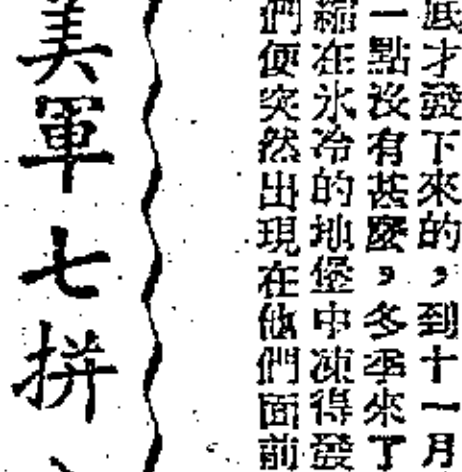 底才發下來的，到十一月
一點沒有甚麼，冬季來了
縮在氷冷的地堡中凍得發
們便突然出現在他們面前
美軍七拼